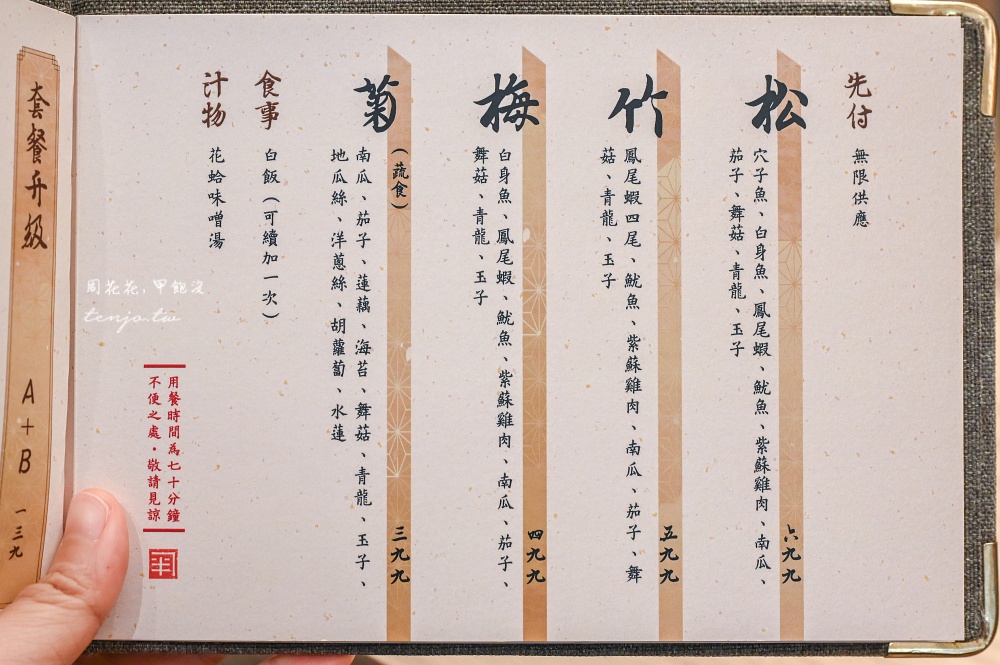 先付
無限供應
松
穴子魚、白身魚、鳳尾蝦、魷魚、紫蘇雞肉、南瓜、
茄子、舞菇、青龍、玉子
六九九
竹
鳳尾蝦四尾、魷魚、紫蘇雞肉、南瓜、茄子、舞
菇、青龍、玉子
五九九
梅
白身魚、鳳尾蝦、魷魚、紫蘇雞肉、南瓜、茄子、
舞菇、青龍、玉子
四九九
菊
(蔬食)
南瓜、茄子、蓮藕、海苔、舞菇、青龍、玉子、
地瓜絲、洋蔥絲、胡蘿蔔、水蓮
三九九
食事
白飯(可續加一次)
汁物
花蛤味噌湯
用餐時間為七十分鐘
不便之處・敬請見諒
周花花,甲飽沒
tenjo.tw
套餐升級
A+B
一三九